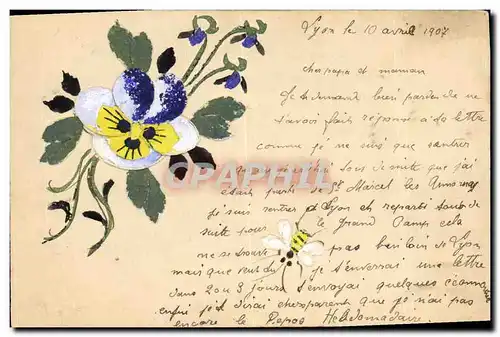 Lyon le 10 avril 1907
cher papa et maman
Je te demande bien pardon de ne
t'avoir fait réponse à ta lettre
comme je ne suis que rentrer
tout de suite que j'ai
était parti de St Marcel les
je suis rentrer à Lyon et reparti tout de
suite pour le grand Camp cela
ne se trouve pas bien loin de Lyon
mais que veut tu je t'enverrai une lettre
dans 2 ou 3 jours t'envoyai quelques
enfin je te dirai chers parent que je n'ai pas
encore le Repos Hebdomadaire.
CPA
PARIS.COM